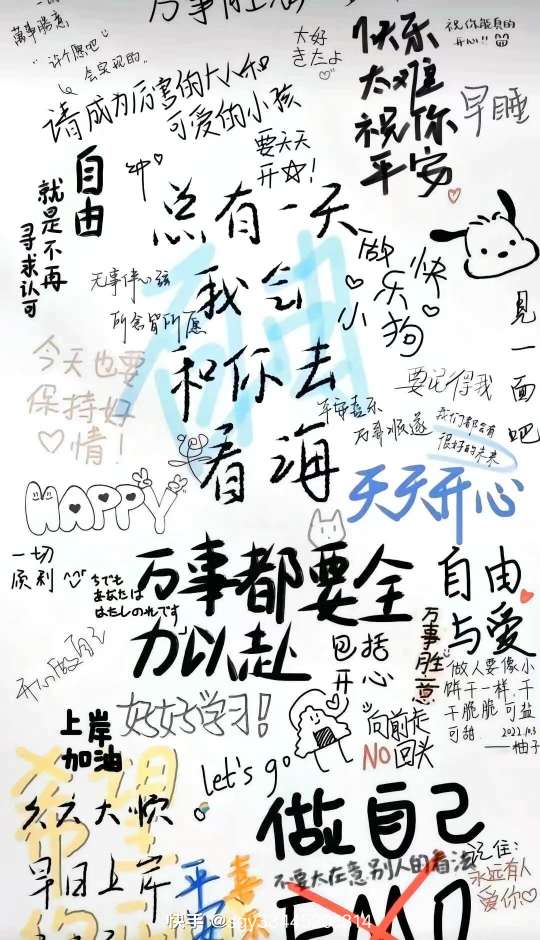 萬事勝意
许个愿吧
会实现的..
请成为厉害的大人和
可爱的小孩
太好
きたよ
快乐
太难
祝你
平安
祝你能真的
开心!!
早睡
要天天
开☆!
自由
就是不再
寻求认可
冲
总有一天
我会
和你去
看海
做
快
乐
小
狗
见一面吧
所念皆所愿
今天也要
保持好
♡情!
要记得我
平安喜乐
万事顺遂
我们都会有
很好的未来
HAPPY
天天开心
一切
顺利
万事都要全
力以赴
包括
开心
自由
与爱
万事胜意
做人要像小
饼干一样,干
干脆脆 可盐
可甜. 2022.10.3
——柚子
开心做自己
好好学习!
上岸
加油
let's go
向前走
NO回头
希望
六六大顺
早日上岸
平
喜
做自己
不要太在意别人的看法
END
记住:
永远有人
爱你♡
快手